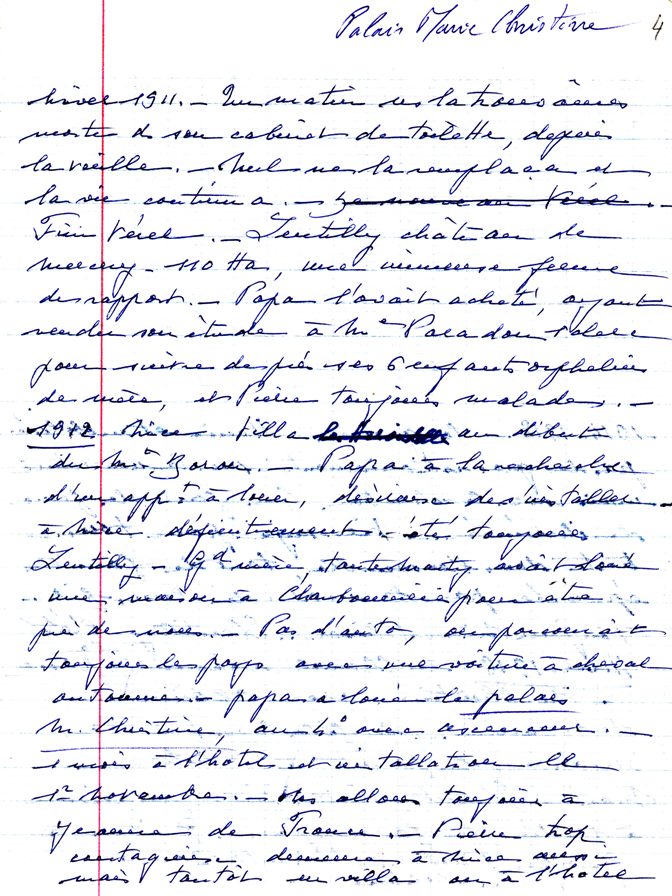 Palais Marie Christine 4
hiver 1911. - Un matin ns la trouvâmes
morte ds son cabinet de toilette, depuis
la veille. - Nul ne la remplaça et
la vie continua. -
Fini Vérel. - Lentilly château de
110 Ha, une immense ferme
de rapport. - Papa l'avait acheté, ayant
vendu son étude à Me
pour suivre de près ses 6 enfants orphelins
de mère, et Pierre toujours malade. -
1912 Nice Villa au début
du Mt Boron. - Papa à la recherche
d'un appt à louer, désireux de s'installer
à Nice définitivement - été toujours
Lentilly - Gd mère, tante Marty avait loué
une maison à Charbonnière pour être
près de nous. - Pas d'auto, on parcourait
toujours les pays avec une voiture à cheval
automne. - papa a loué le palais
M. Christine, au 4° avec ascenseur. -
1 mois à l'hôtel et installation le
1er novembre. - ns allons toujours à
Jeanne de France. - Pierre trop
contagieux demeure à Nice aussi
mais tantôt en villa ou à l'hôtel